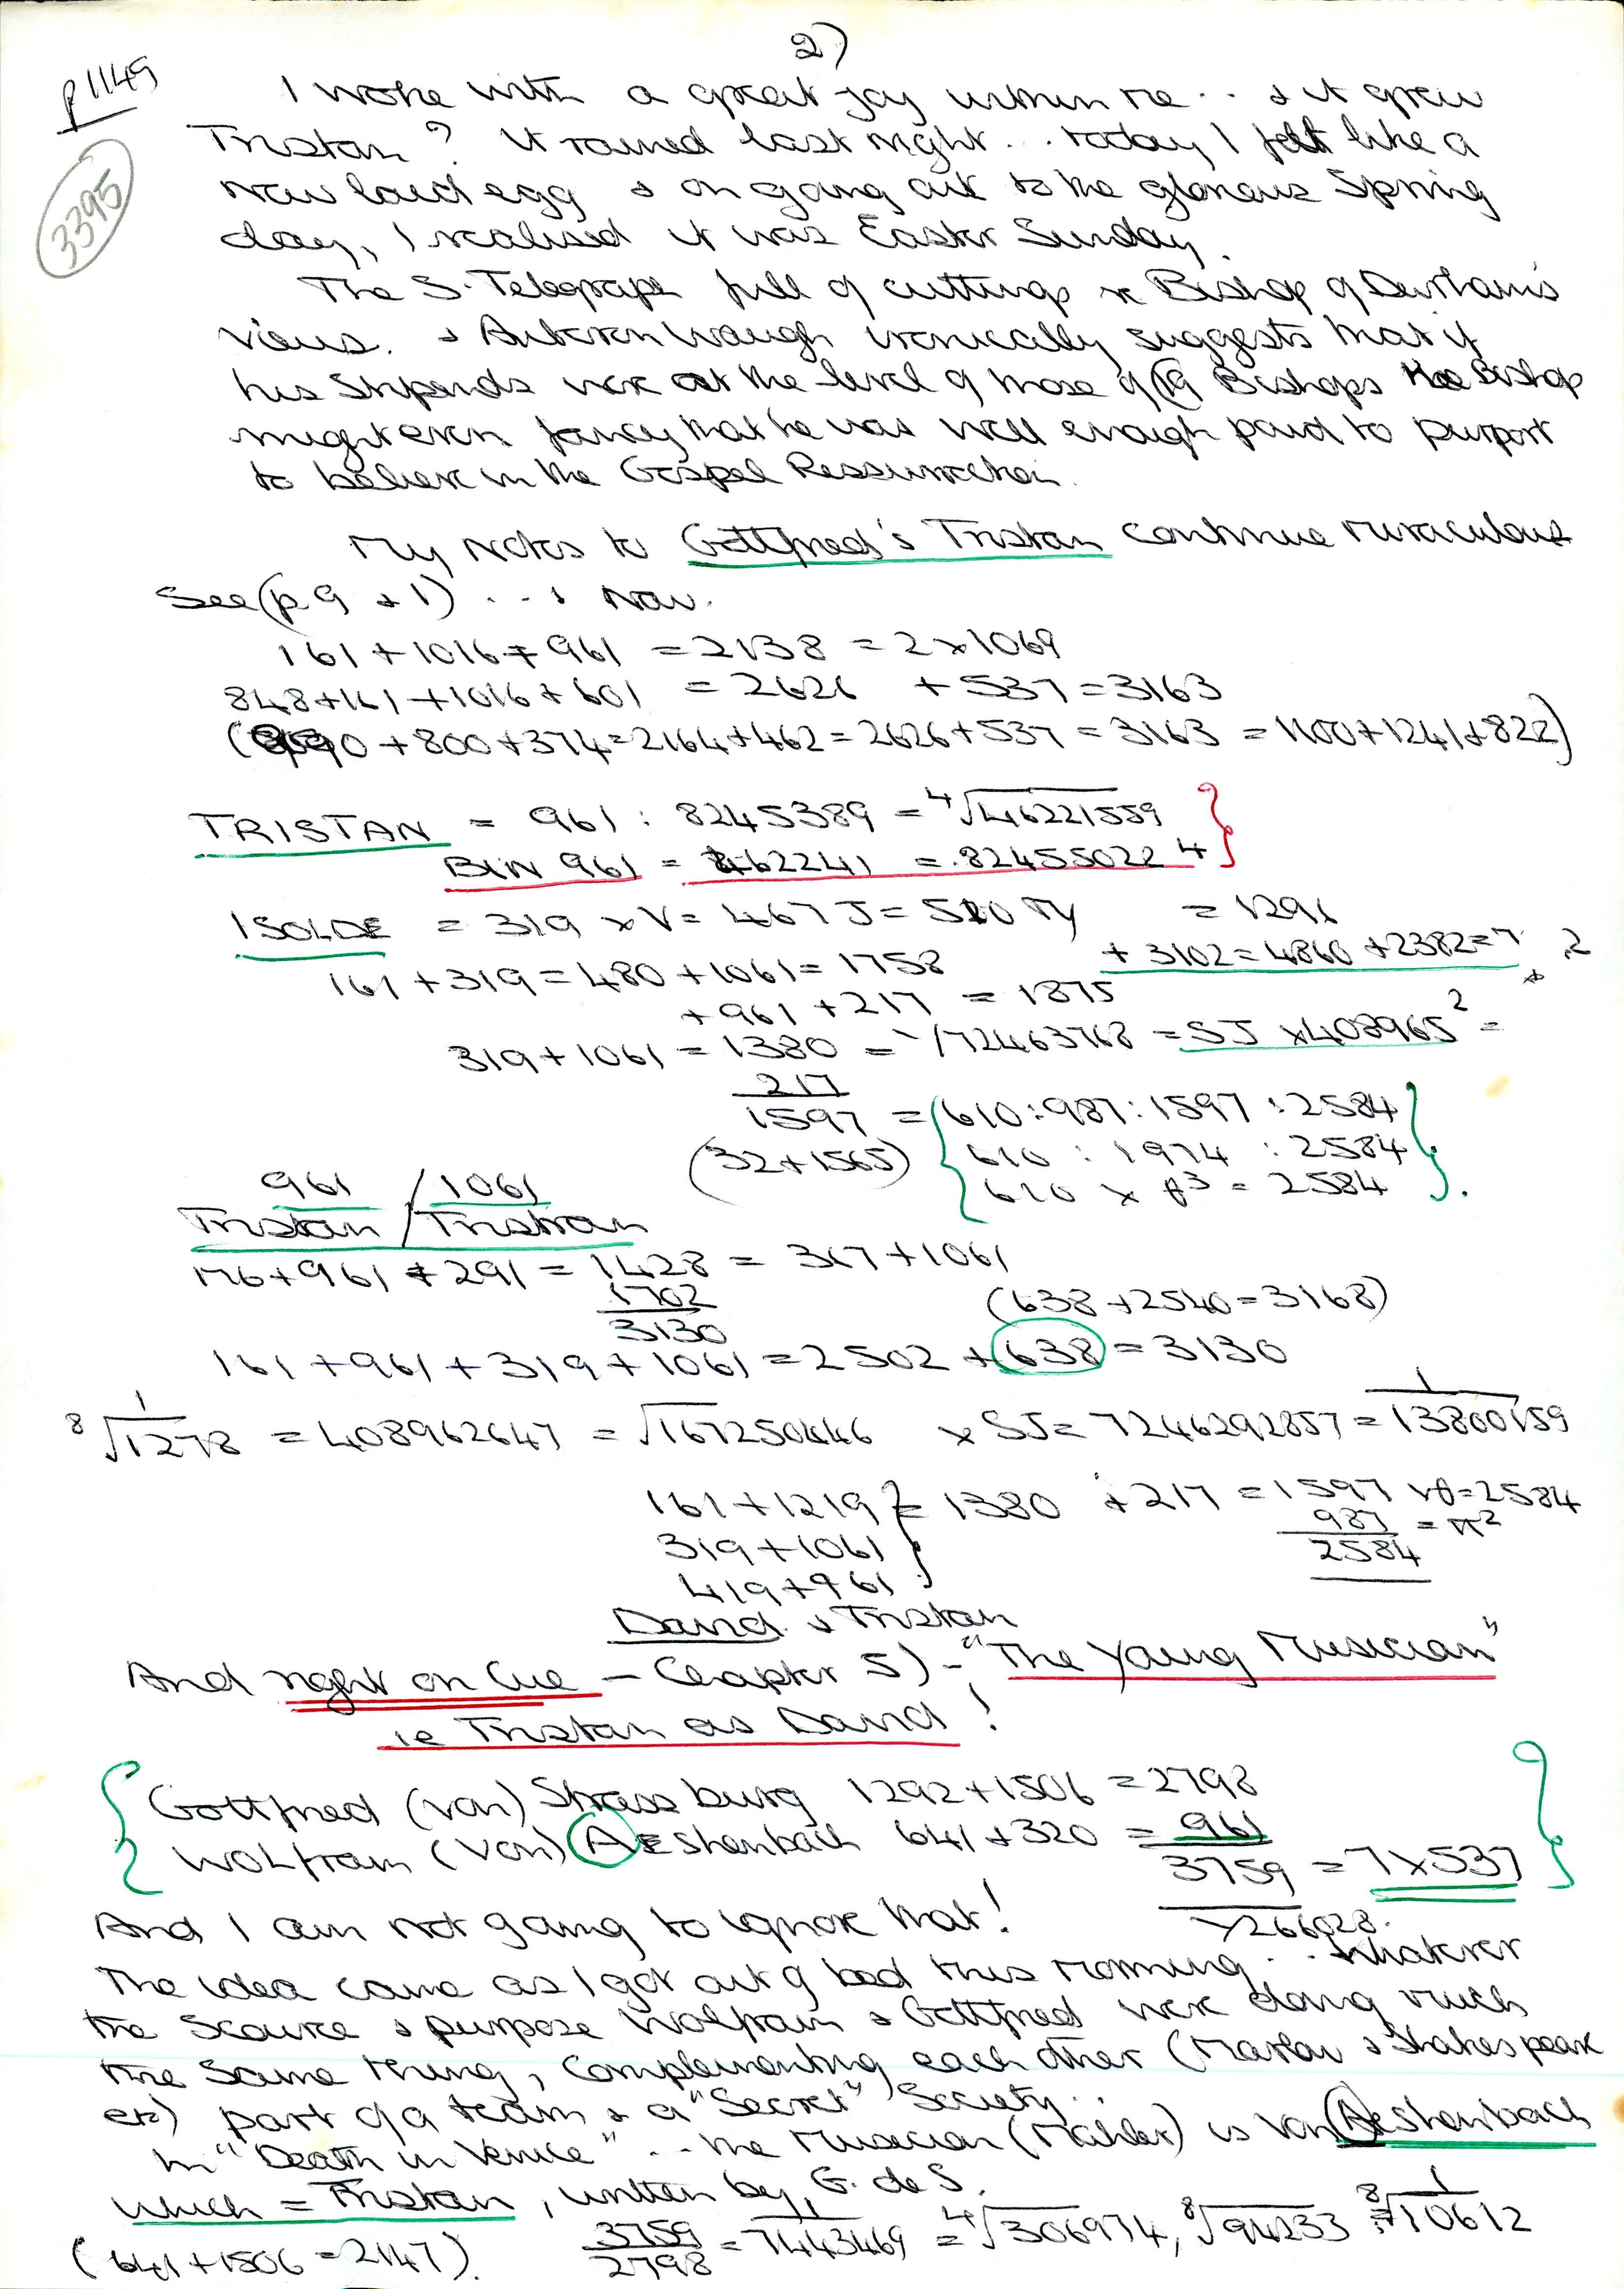 2)
p1149
3395
I woke with a great joy within me .. & it grew
Tristan? It rained last night... today, I felt like a
new laid egg & on going out to the glorious Spring
day, I realised it was Easter Sunday.
The S. Telegraph full of cuttings re Bishop of Durham's
views. & Auberon Waugh ironically suggests that if
his stipends were at the level of those of 19 Bishops the Bishop
might even fancy that he was well enough paid to purport
to believe in the Gospel Ressurrection.
My notes to Gottfried's Tristan continue miraculous
See (p 9 + 1) ... & Now.
161 + 1016 + 961 = 2138 = 2 x 1069
848 + 161 + 1016 + 601 = 2626 + 537 = 3163
( 90 + 800 + 374 = 2164 + 462 = 2626 + 537 = 3163 = 1100 + 1241 + 822)
TRISTAN = 961 : 8245389 = 4√46221559
BIN 961 = 462241 = .82455022 4
ISOLDE = 319 x V = 467 J = 510 Ty = 1291
161 + 319 = 480 + 1061 = 1758 + 3102 = 4860 + 2382 = 7 .2
+ 961 + 217 = 1875
319 + 1061 = 1380 = 1/72463768 = SJ x 408965 2 =
217
1597 = (610 : 987 : 1597 : 2584
(32 + 1565) 610 : 1974 : 2584
610 x θ3 = 2584
961 / 1061
Tristan / Tristran
176 + 961 + 291 = 1428 = 367 + 1061
1702
3130
(638 + 2540 = 3168)
161 + 961 + 319 + 1061 = 2502 + 638 = 3130
8√1/1278 = 408962647 = √167250446 x SJ = 7246292857 = 1/13800159
161 + 1219 } = 1380 + 217 = 1597 x θ = 2584
319 + 1061 987 = π2
419 + 961 2584
David & Tristan
And right on Cue - Chapter 5) - "The Young Musician"
ie Tristan as David!
Gottfried (von) Strassburg 1292 + 1506 = 2798
Wolfram (von) AEshenbach 641 + 320 = 961
3759 = 7 x 537
And I am not going to ignore that! 266028.
The idea came as I got out of bed this morning .. Whatever
the Source & purpose Wolfram & Gottfried were doing much
the same thing, complementing each other (Marlow & Shakespeare
etc) part of a team & a "Secret" Society..
In "Death in Venice" ... the Musician (Mahler) is Von Aeshenbach
which = Tristan, written by G. de S.
(641 + 1506 = 2147). 3759/2798 = 1/7443469 = 4√306974, 8√94233 8√1/10612